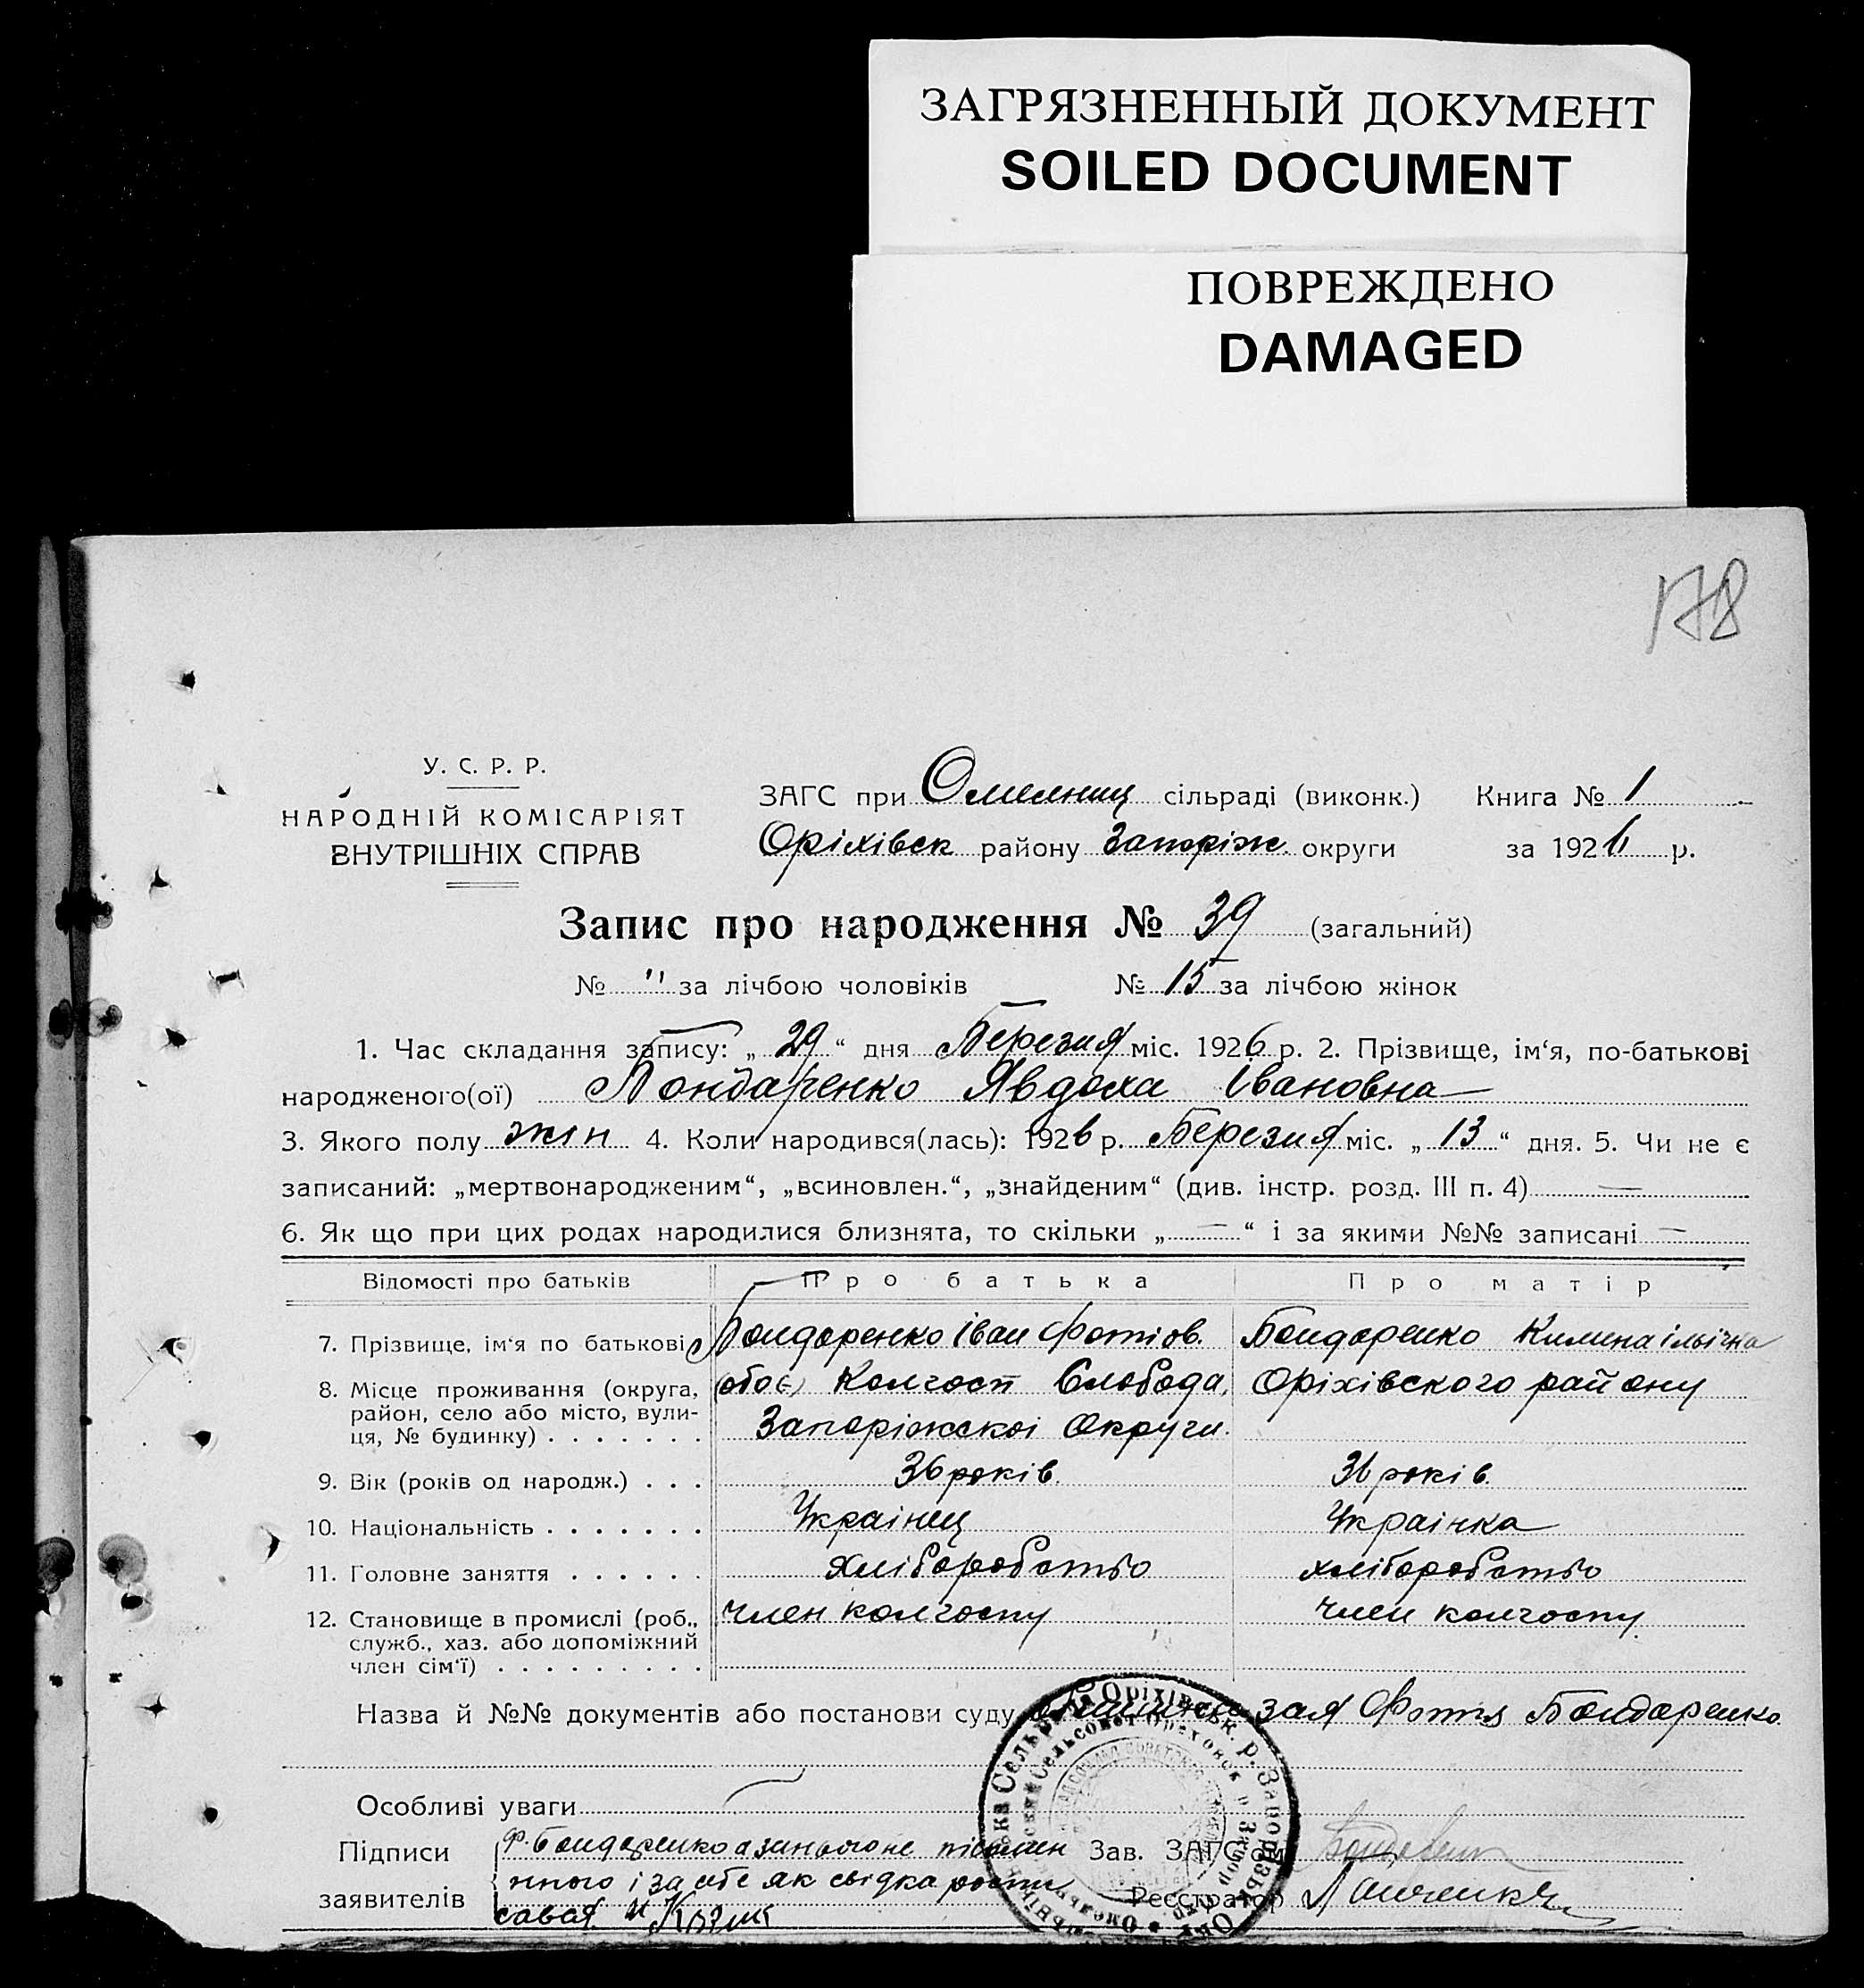 ЗАГРЯЗНЕННЫЙ ДОКУМЕНТ
SOILED DOCUMENT
ПОВРЕЖДЕНО
DAMAGED
178
У. С. Р. Р.
НАРОДНІЙ КОМІСАРІЯТ
ВНУТРІШНІХ СПРАВ
ЗАГС при Омелниц сільраді (виконк.) Книга № 1
Оріхівск району Запоріж. округи за 1926 р.
Запис про народження № 39 (загальний)
№ " за лічбою чоловіків № 15 за лічбою жінок
1. Час складання запису: „ 29 “ дня Березня міс. 1926 р. 2. Прізвище, ім‘я, по-батькові
народженого(ої) Бондаренко Явдоха Івановна
3. Якого полу жін 4. Коли народився(лась): 1926 р. Березня міс. „ 13 “ дня. 5. Чи не є
записаний: „мертвонародженим“, „всиновлен.“, „знайденим“ (див. інстр. розд. III п. 4) —
6. Як що при цих родах народилися близнята, то скільки „ — “ і за якими №№ записані —
Відомості про батьків Про батька Про матір
7. Прізвище, ім‘я по батькові Бондаренко Іван Фотіов. Бондаренко Килина ільічна
8. Місце проживання (округа, район, село або місто, вули-ця, № будинку) . . . . . . . (обоє) Колгосп Слобода, Оріхівского району
Запоріжскоі Округи.
9. Вік (років од народж.) . . . 36 років. 36 років.
10. Національність . . . . . . . Украінец Украінка
11. Головне заняття . . . . . . хліборобство хліборобство
12. Становище в промислі (роб., член колгоспу член колгоспу.
служб., хаз. або допоміжний
член сім‘ї) . . . . . . . . .
Назва й №№ документів або постанови суду зая Фотія Бондаренко
Особливі уваги
Підписи Ф. Бондаренко а за нього не писмен Зав. ЗАГС'ом
заявителів ного і за себе як свідка роспи Реєстратор
савсь